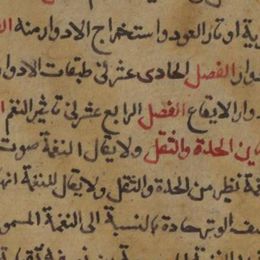 اوتار العود واستخراج الادوار منه
الفصل الحادى عشر فى طبقات الادوار
ادوار الايقاع الفصل الرابع عشر فى تاثير النغم
الحدة والثقل ولا يقال النغمة صوت
نظير من الحدة والثقل ولا يقال للنغمة انها
الوتر حادة بالنسبة الى النغمة